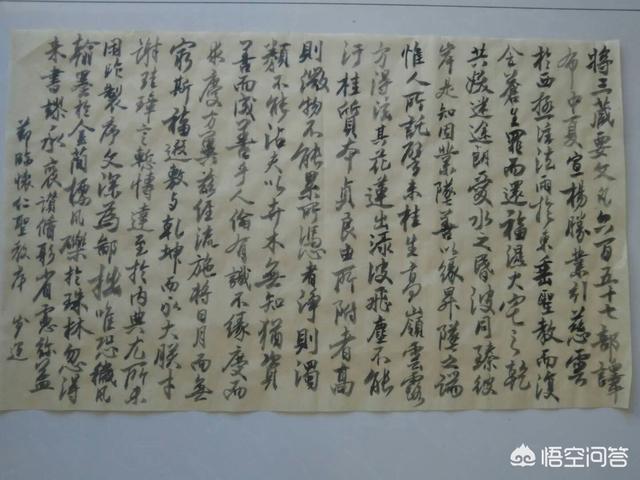 將三藏要文凡六百五十七部譯
布中夏宣揚勝業引慈雲
於西極注法雨於東垂聖教而復
全蒼生罪而還福濕火宅之乾
共拔迷途朗愛水之昏波同臻彼
岸是知因業墜善以緣昇墜之端
惟人所託譬夫桂生高嶺雲露
方得泫其花蓮出淥波飛塵不能
汙桂質本貞良由所附者高
則微物不能累所憑者淨則濁
類不能沾夫以卉木無知猶資
善而成善乎人倫有識不緣慶而
求慶方冀茲經流施將日月而無
窮斯福遐敷與乾坤而永大朕才
謝珪璋言慚博達至於內典尤所未
閑昨製序文深為鄙拙唯恐穢
翰墨於金簡標瓦礫於珠林忽得
來書謬承褒讚循躬省慮弥益
節臨懷仁聖教序
悟空问答